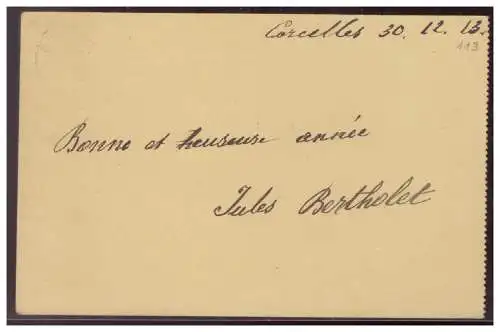 Corcelles 30. 12. 13.
113
Bonne et heureuse année
Jules Bertholet